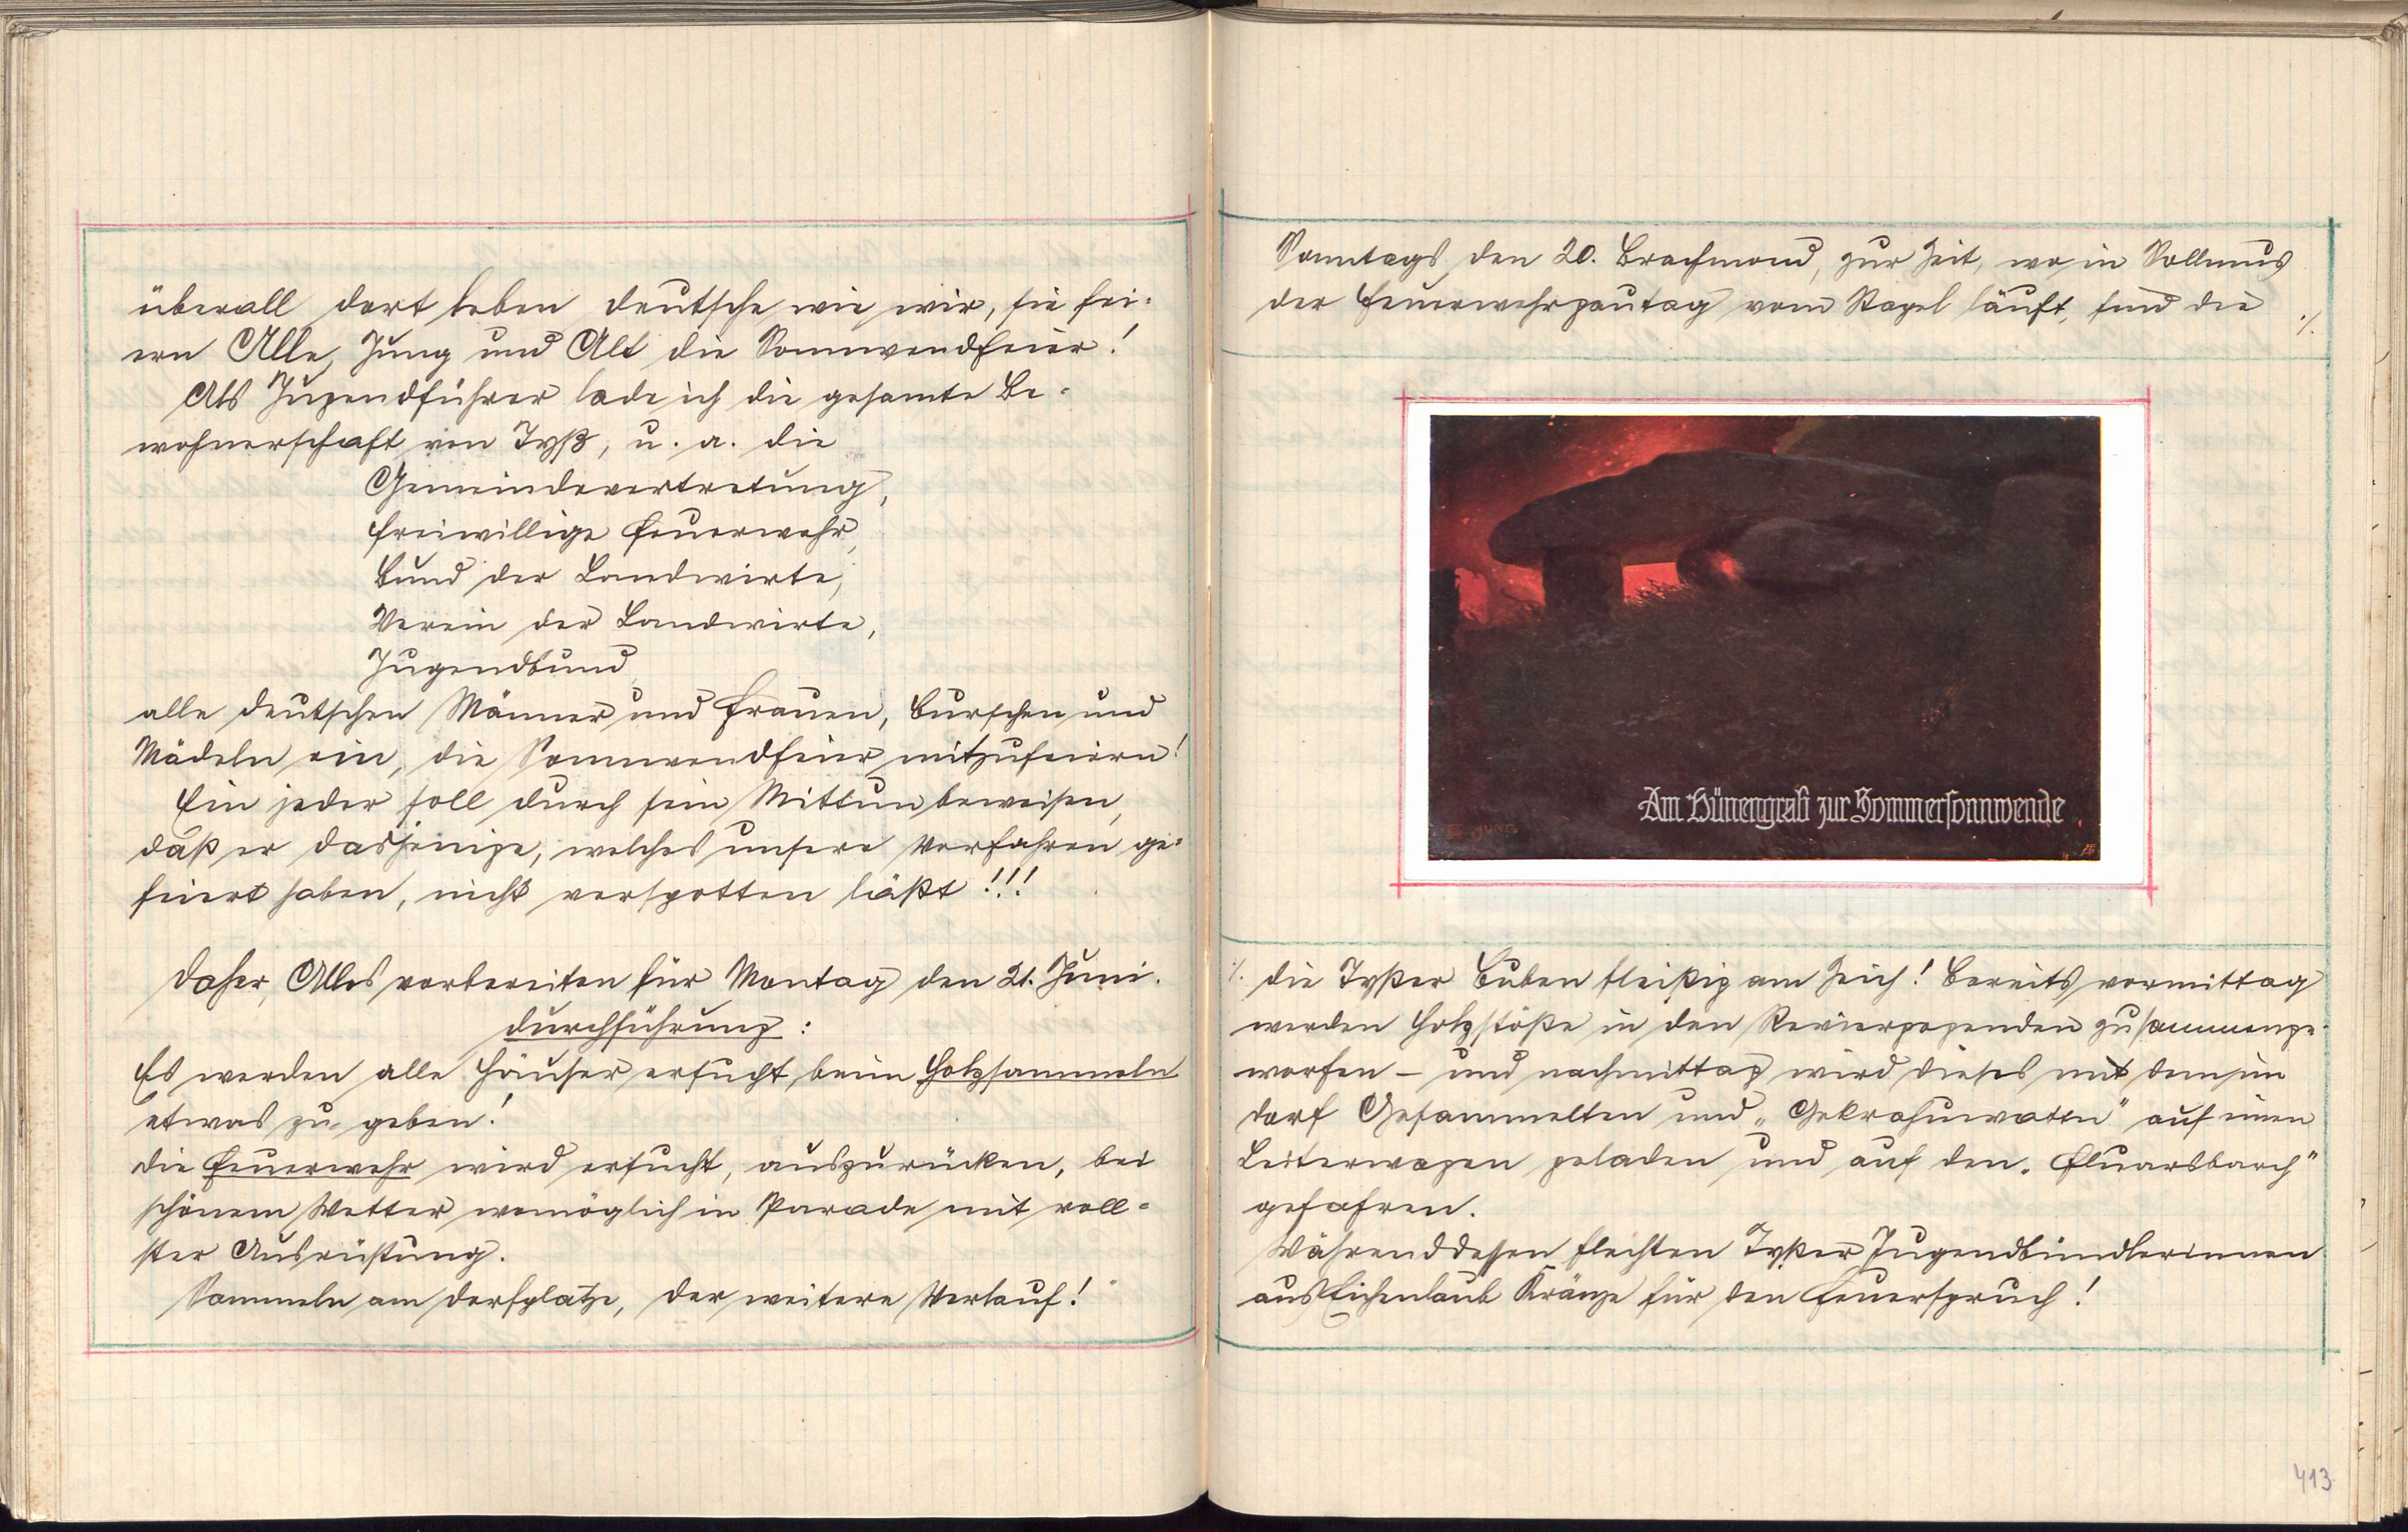 überall dort leben Deutsche wie wir, sie fei-
ern Alle, Jung und Alt die Sonnwendfeier!
Als Jugendführer lade ich die gesamte Be-
wohnerschaft von Tyß, u. a. die
Gemeindevertretung,
Freiwillige Feuerwehr,
Bund der Landwirte,
Verein der Landwirte,
Jugendbund
alle deutschen Männer und Frauen, Burschen und
Mädeln ein, die Sonnwendfeier mitzufeiern!
Ein jeder soll durch sein Mittun beweisen,
daß er dasjenige, welches unsere Vorfahren ge-
feiert haben, nicht verspotten läßt!!!
Daher, Alles vorbereiten für Montag den 21. Juni.
Durchführung:
Es werden alle Häuser ersucht, beim Holzsammeln
etwas zu geben!
Die Feuerwehr wird ersucht, auszurücken, bei
schönem Wetter womöglich in Parade mit voll-
ster Ausrüstung.
Sammeln am Dorfplatze, der weitere Verlauf!"
Sonntags den 20. Brachmond, zur Zeit, wo in Sollmus
der Feuerwehrgautag vom Stapel läuft, sind die ./.
Am Hünengrab zur Sommersonnwende
E JUNG
./. die Tyßer Buben fleißig am Zeich! Bereits vormittag
werden Holzstöße in den Reviergegenden zusammenge-
worfen – und nachmittag wird dieses mit dem im
Dorf Gesammelten und auf einen
Leiterwagen geladen und auf den „Fluarsbarch"
gefahren.
Währenddessen flechten Tyßer Jugendbündlerinnen
aus Eichenlaub Kränze für den Feuerspruch!
413